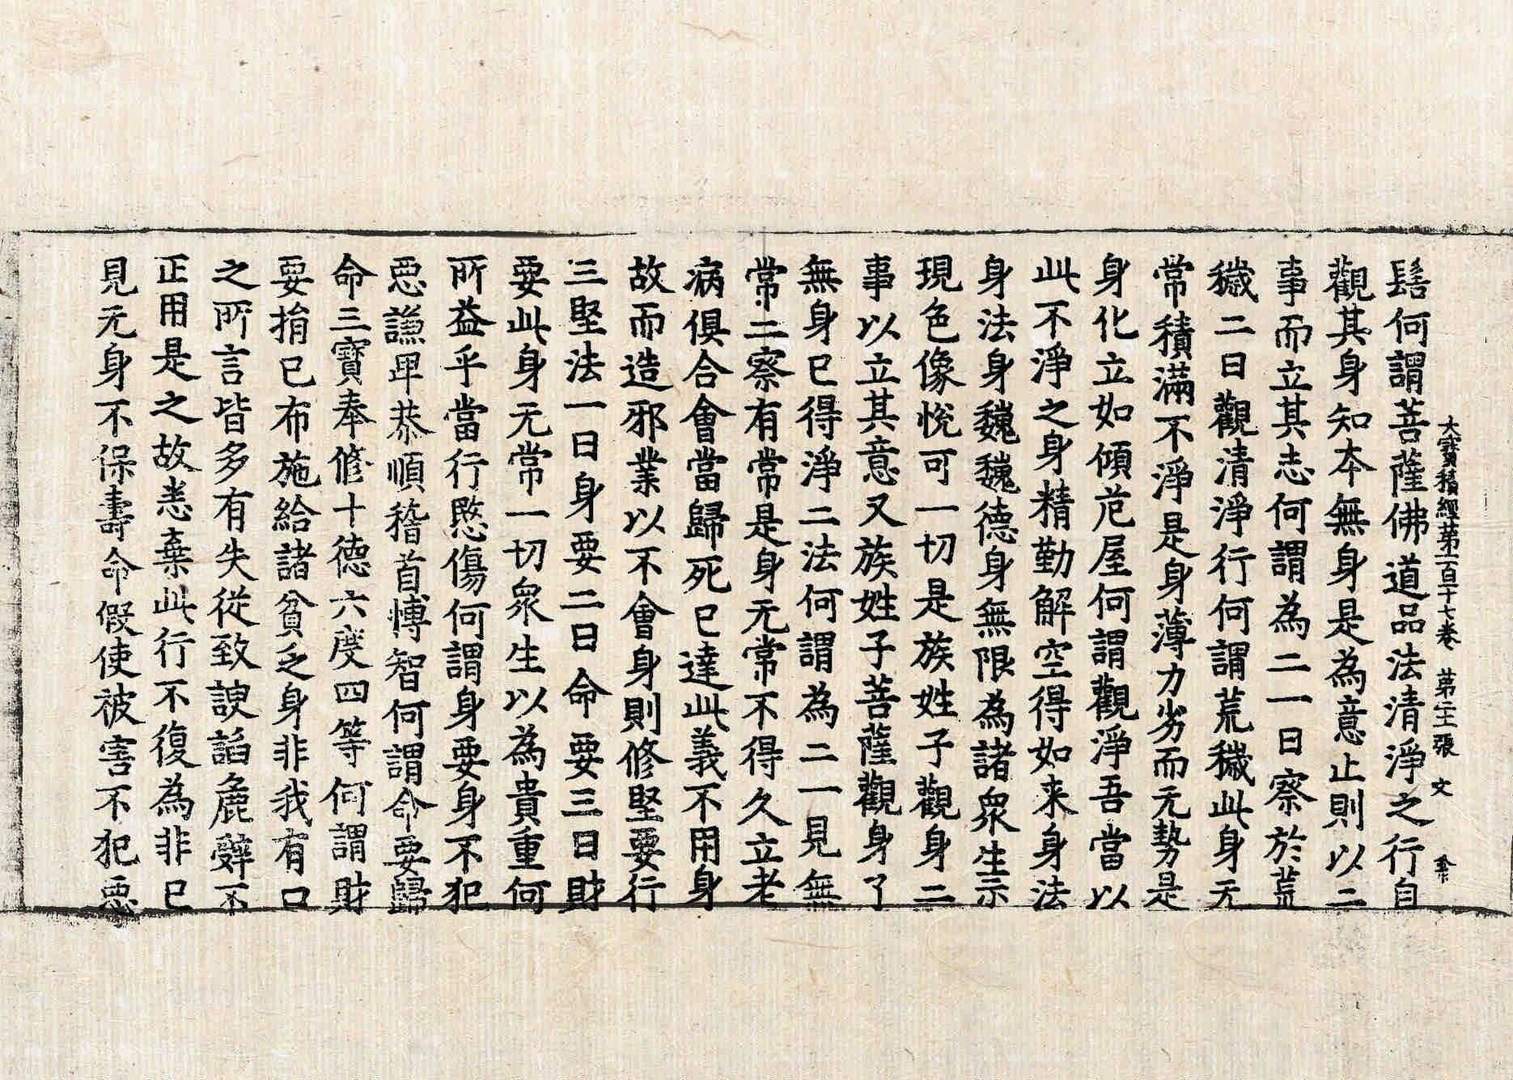 大寶積經第一百十七卷 第二張 文
髻何謂菩薩佛道品法清淨之行自
觀其身知本無身是為意止則以二
事而立其志何謂為二一曰察於荒
穢二曰觀清淨行何謂荒穢此身无
常積滿不淨是身薄力劣而无勢是
身化立如傾危屋何謂觀淨吾當以
此不淨之身精勤解空得如来身法
身法身巍巍德身無限為諸衆生示
現色像悅可一切是族姓子觀身二
事以立其意又族姓子菩薩觀身了
無身已得淨二法何謂為二一見無
常二察有常是身无常不得久立老
病俱合會當歸死已達此義不用身
故而造邪業以不會身則修堅要行
三堅法一曰身要二曰命要三曰財
要此身无常一切衆生以為貴重何
所益乎當行愍傷何謂身要身不犯
惡謙卑恭順稽首愽智何謂命要歸
命三寶奉修十德六度四等何謂財
要捐已布施給諸貧乏身非我有口
之所言皆多有失從致諛諂麁辭不
正用是之故恚棄此行不復為非已
見无身不保壽命假使被害不犯惡